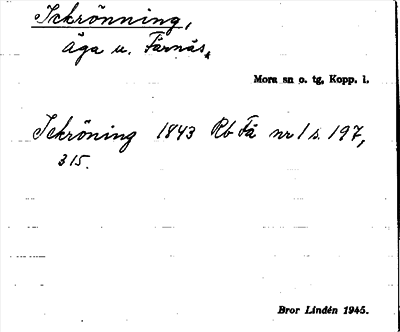 Ickrönning,
äga u. Färnäs.
Mora sn o. tg, Kopp. l.
Ickröning 1843 Rb Fä nr 1 s. 197,
315.
Bror Lindén 1945.